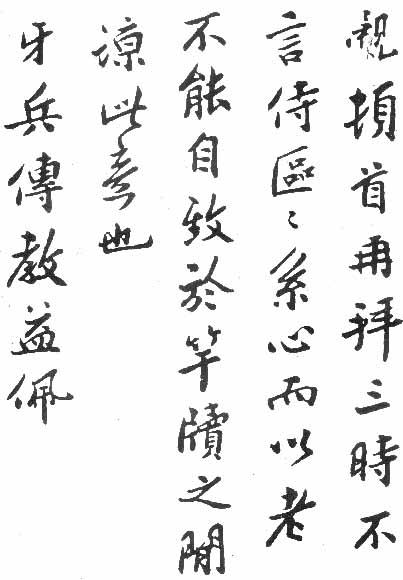 覿頓首再拜三時不
言侍區〻系心而以老
不能自致於竿牘之閒
諒此意也
牙兵傳教益佩